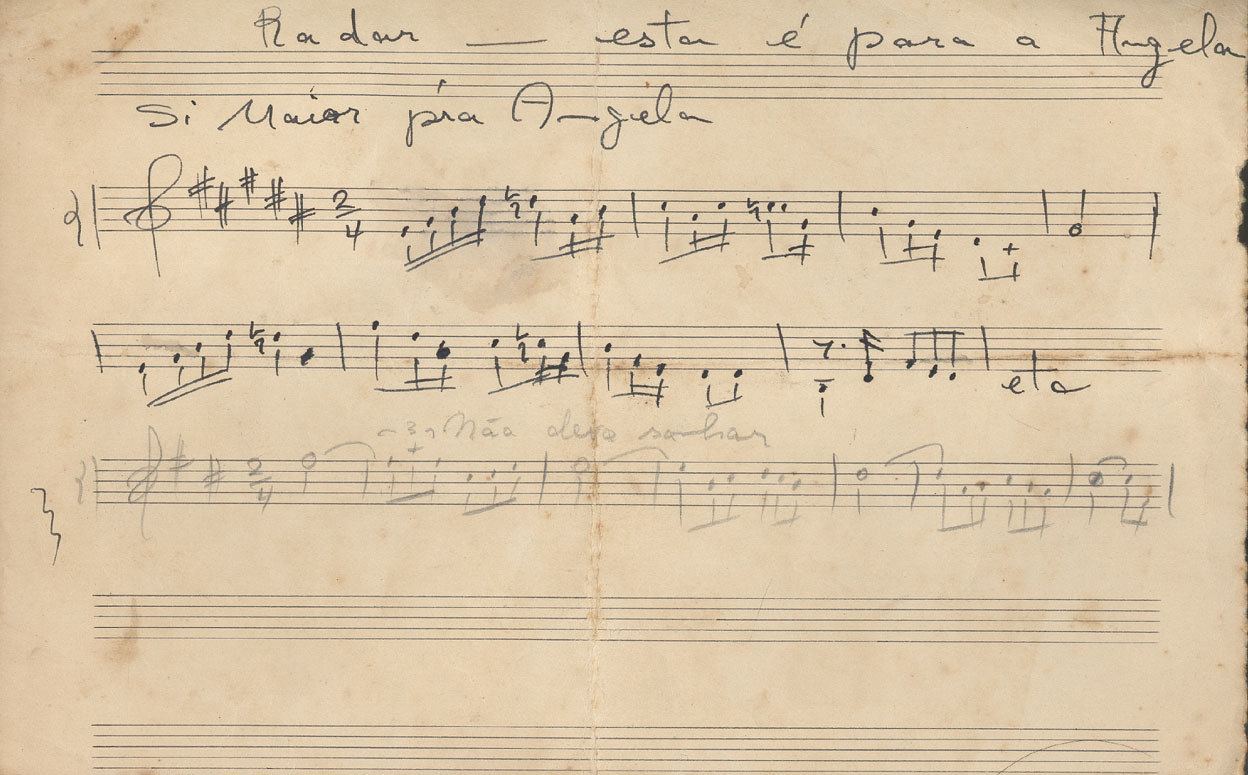 Radar — esta é para a Angela
Si Maior p'ra Angela
2/4
eta
3 Não devo sonhar
2/4